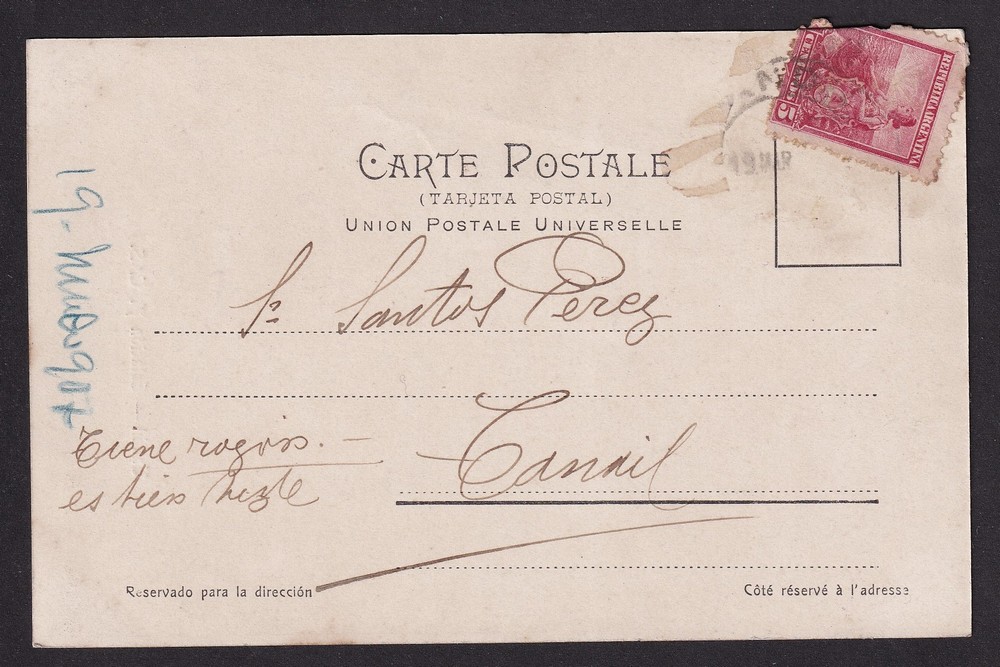 REPUBLICA ARGENTINA
5
19 MAR
CARTE POSTALE
(TARJETA POSTAL)
UNION POSTALE UNIVERSELLE
Sr Santos Perez
Tandil
Tiene
es bien
19-
Reservado para la dirección
Côté réservé à l'adresse